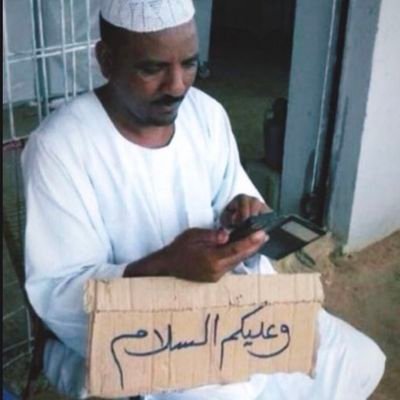 وعليكم السلام